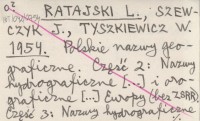 oś RATAJSKI L., SZEW-
CZYK J., TYSZKIEWICZ W.
1954. Polskie nazwy geo-
graficzne. Część 2: Nazwy
hydrograficzne [...] i oro-
graficzne [...] Europy (bez ZSRR).
Część 3: Nazwy hydrograficzne